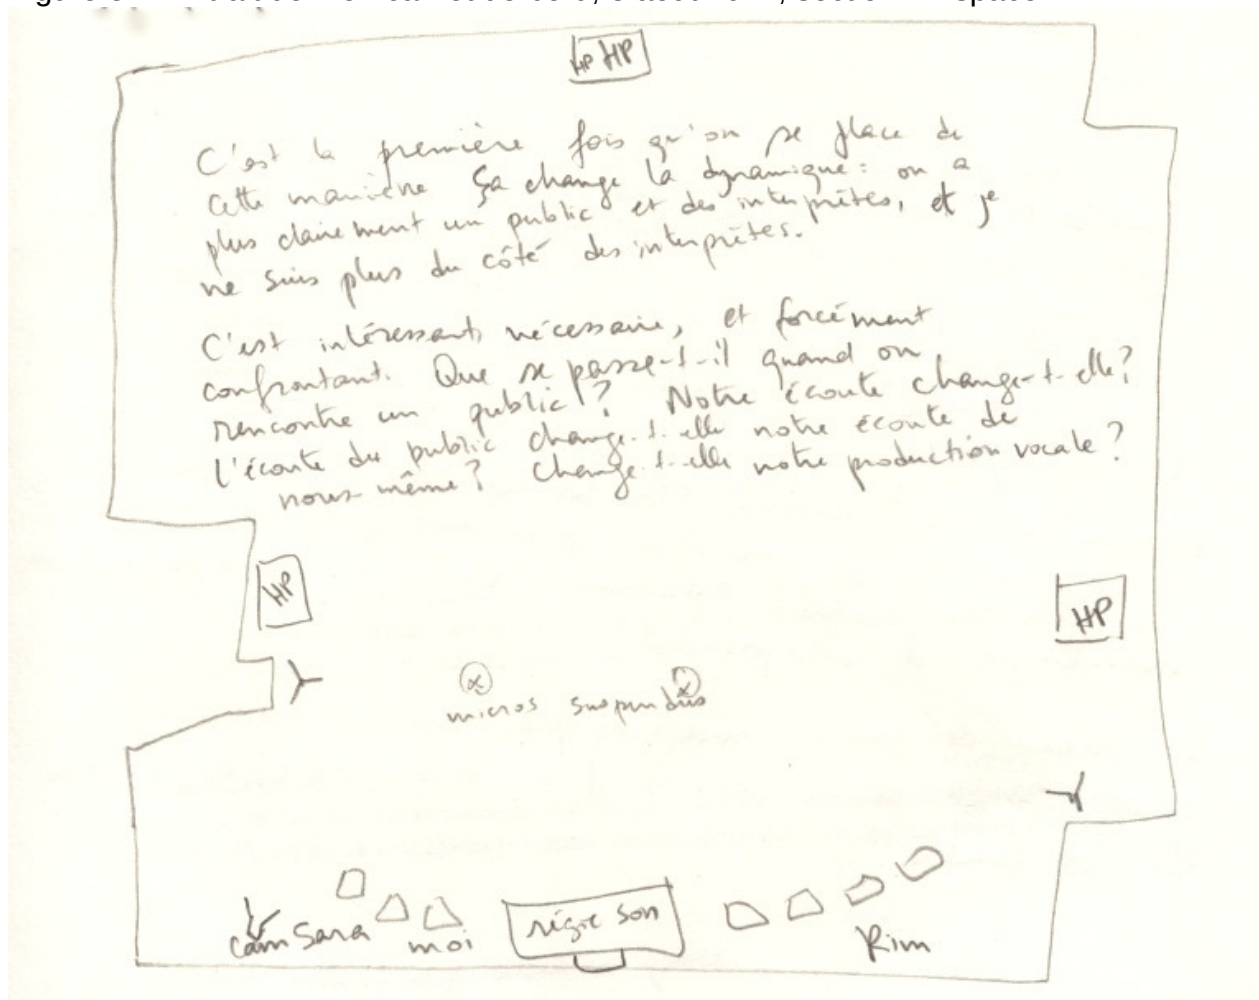 HP HP
C'est la première fois qu'on se place de
cette manière Ça change la dynamique : on a
plus clairement un public et des interprètes, et je
ne suis plus du côté des interprètes.
C'est intéressant, nécessaire, et forcément
confrontant. Que se passe-t-il quand on
rencontre un public ? Notre écoute change-t-elle ?
L'écoute du public change-t-elle notre écoute de
nous-même ? Change-t-elle notre production vocale ?
HP
HP
micros suspendus
cam Sara moi régie son Rim